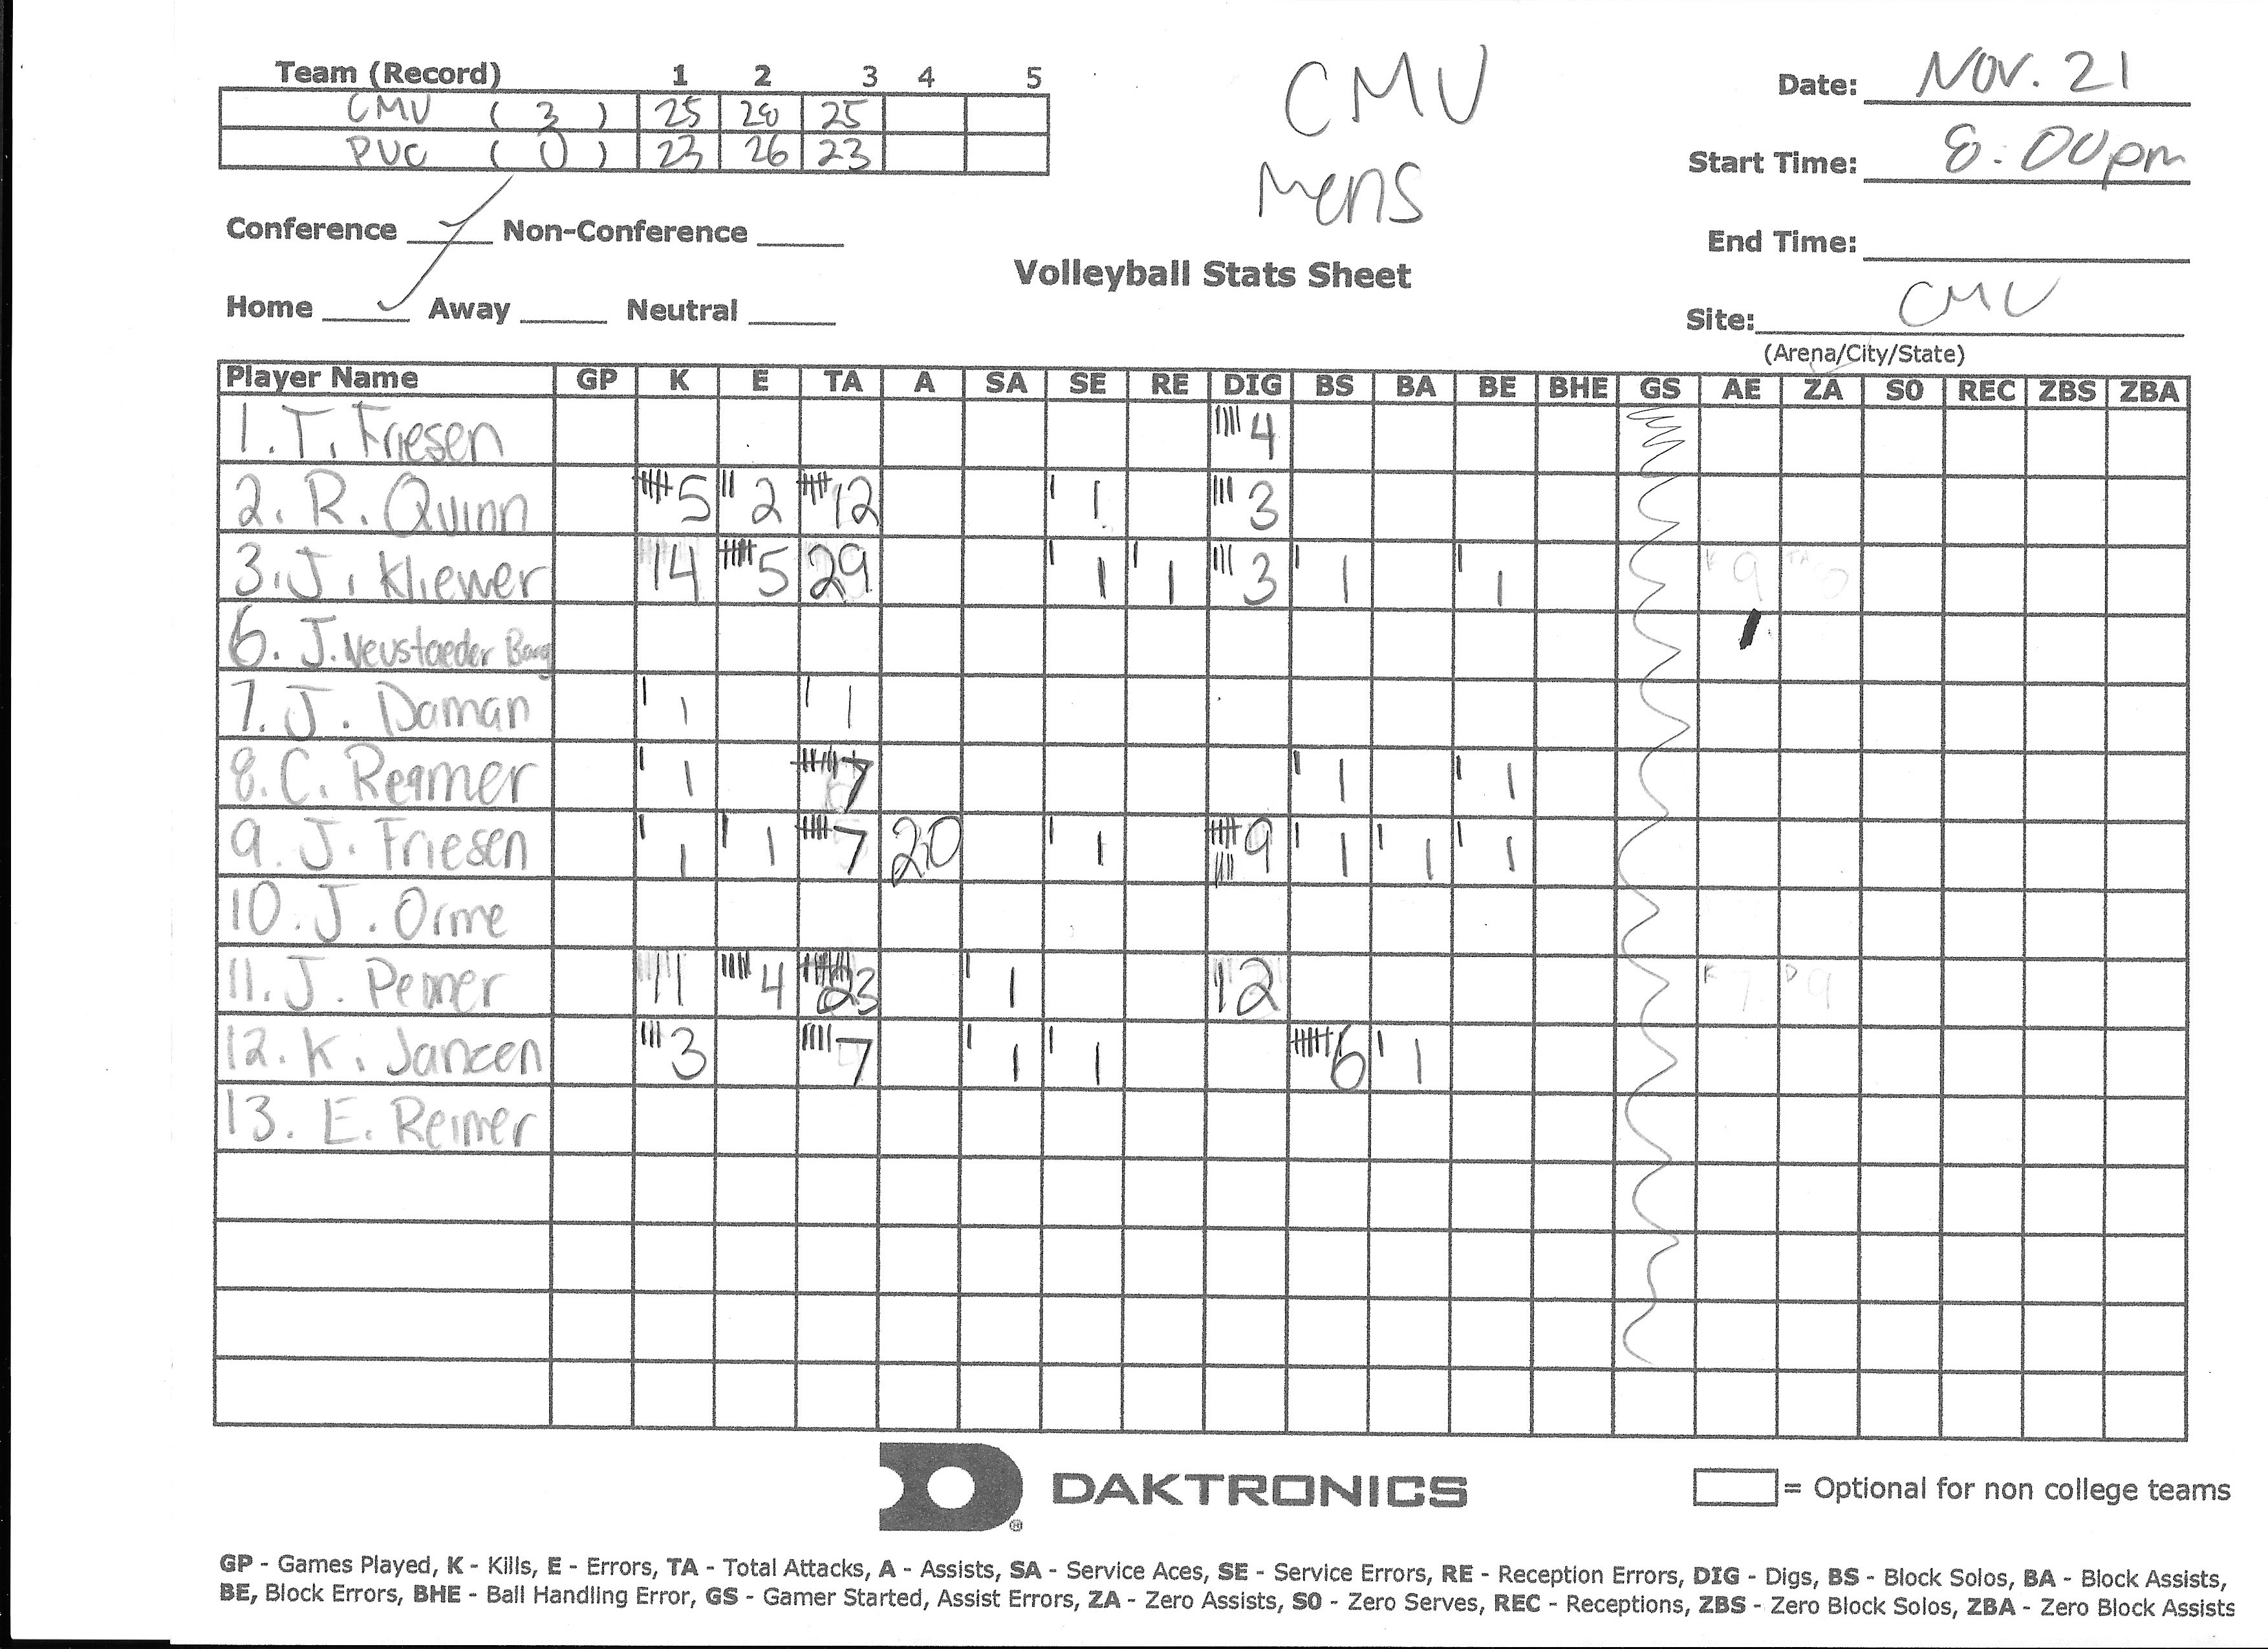 Team (Record) 1 2 3 4 5
CMU ( 3 ) 25 28 25
PVC ( 0 ) 23 26 23
CMU
Mens
Date: Nov. 21
Start Time: 8:00pm
End Time:
Conference Non-Conference
Home Away Neutral
Volleyball Stats Sheet
Site: CMU
(Arena/City/State)
Player Name GP K E TA A SA SE RE DIG BS BA BE BHE GS AE ZA SO REC ZBS ZBA
1. T. Friesen 4
2. R. Quinn 5 2 12 1 3
3. J. Kliewer 14 5 29 1 1 3 1 1 K 9 TA
6. J. Neustaeder Barg
7. J. Daman 1 1
8. C. Reimer 1 7 1 1
9. J. Friesen 1 1 7 20 1 9 1 1 1
10. J. Orme
11. J. Penner 11 4 23 1 12 K 7 D 9
12. K. Janzen 3 7 1 1 6 1
13. E. Reimer
DAKTRONICS
®
= Optional for non college teams
GP - Games Played, K - Kills, E - Errors, TA - Total Attacks, A - Assists, SA - Service Aces, SE - Service Errors, RE - Reception Errors, DIG - Digs, BS - Block Solos, BA - Block Assists,
BE, Block Errors, BHE - Ball Handling Error, GS - Gamer Started, Assist Errors, ZA - Zero Assists, S0 - Zero Serves, REC - Receptions, ZBS - Zero Block Solos, ZBA - Zero Block Assists